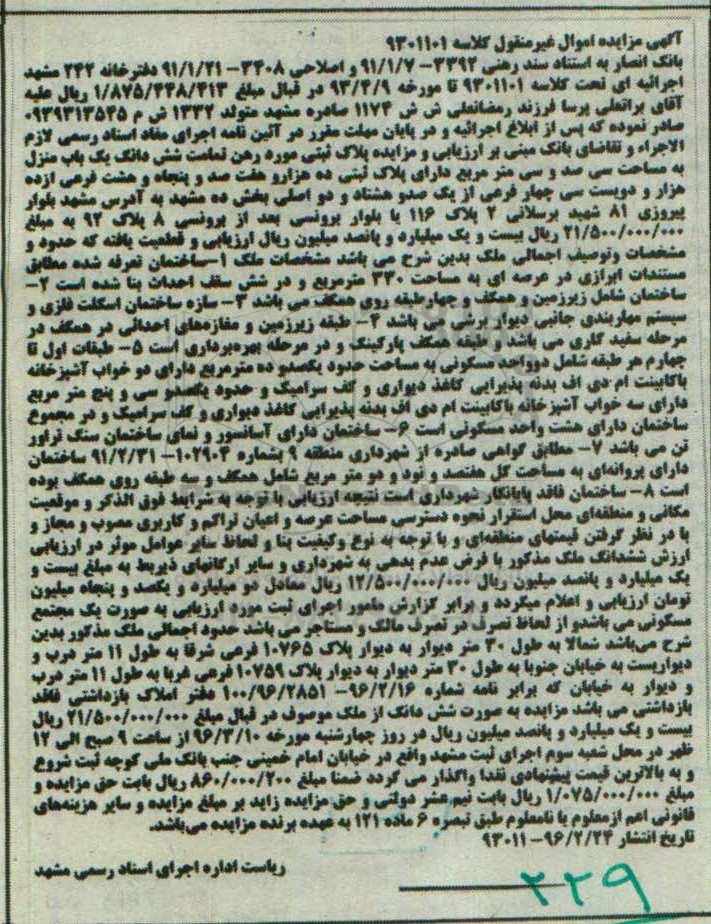 آگهی مزایده اموال غیرمنقول کلاسه ۹۳۰۱۱۰۱
بانک انصار به استناد سند رهنی ۳۳۹۲- ۹۱/۱/۷ و اصلاحی ۳۴۰۸- ۹۱/۱/۲۱ دفترخانه ۲۴۲ مشهد
اجرائیه ای تحت کلاسه ۹۳۰۱۱۰۱ تا مورخه ۹۳/۴/۹ در قبال مبلغ ۱/۸۷۵/۴۴۸/۴۱۳ ریال علیه
آقای براتعلی پرسا فرزند رمضانعلی ش ش ۱۱۷۴ صادره مشهد متولد ۱۳۳۲ ش م ۰۹۳۹۳۱۳۵۴۵
صادر نموده که پس از ابلاغ اجرائیه و در پایان مهلت مقرر در آئین نامه اجرای مفاد اسناد رسمی لازم
الاجراء و تقاضای بانک مبنی بر ارزیابی و مزایده پلاک ثبتی مورد رهن تمامت شش دانگ یک باب منزل
به مساحت سی صد و سی متر مربع دارای پلاک ثبتی ده هزارو هفت صد و پنجاه و هشت فرعی ازده
هزار و دویست سی چهار فرعی از یک صدو هشتاد و دو اصلی بخش ده مشهد به آدرس مشهد بلوار
پیروزی ۸۱ شهید برسلانی ۲ پلاک ۱۱۶ یا بلوار برونسی بعد از برونسی ۸ پلاک ۹۲ به مبلغ
۲۱/۵۰۰/۰۰۰/۰۰۰ ریال بیست و یک میلیارد و پانصد میلیون ریال ارزیابی و قطعیت یافته که حدود و
مشخصات وتوصیف اجمالی ملک بدین شرح می باشد مشخصات ملک ۱-ساختمان تعرفه شده مطابق
مستندات ابرازی در عرصه ای به مساحت ۳۳۰ مترمربع و در شش سقف احداث بنا شده است ۲-
ساختمان شامل زیرزمین و همکف و چهارطبقه روی همکف می باشد ۳- سازه ساختمان اسکلت فلزی و
سیستم مهاربندی جانبی دیوار برشی می باشد ۴- طبقه زیرزمین و مغازه‌های احداثی در همکف در
مرحله سفید کاری می باشد و طبقه همکف پارکینگ و در مرحله بهره‌برداری است ۵- طبقات اول تا
چهارم هر طبقه شامل دوواحد مسکونی به مساحت حدود یکصدو ده مترمربع دارای دو خواب آشپزخانه
باکابینت ام دی اف بدنه پذیرایی کاغذ دیواری و کف سرامیک و حدود یکصدو سی و پنج متر مربع
دارای سه خواب آشپزخانه باکابینت ام دی اف بدنه پذیرایی کاغذ دیواری و کف سرامیک و در مجموع
ساختمان دارای هشت واحد مسکونی است ۶- ساختمان دارای آسانسور و نمای ساختمان سنگ تراور
تن می باشد ۷- مطابق گواهی صادره از شهرداری منطقه ۹ بشماره ۱۰۲۹۰۴- ۹۱/۲/۳۱ ساختمان
دارای پروانه‌ای به مساحت کل هفتصد و نود و دو متر مربع شامل همکف و سه طبقه روی همکف بوده
است ۸- ساختمان فاقد پایانکار شهرداری است نتیجه ارزیابی با توجه به شرایط فوق الذکر و موقعیت
مکانی و منطقه‌ای محل استقرار نحوه دسترسی مساحت عرصه و اعیان تراکم و کاربری مصوب و مجاز و
با در نظر گرفتن قیمتهای منطقه‌ای و با توجه به نوع وکیفیت بنا و لحاظ سایر عوامل موثر در ارزیابی
ارزش ششدانگ ملک مذکور با فرض عدم بدهی به شهرداری و سایر ارگانهای ذیربط به مبلغ بیست و
یک میلیارد و پانصد میلیون ریال ۱۲/۵۰۰/۰۰۰/۰۰۰ ریال معادل دو میلیارد و یکصد و پنجاه میلیون
تومان ارزیابی و اعلام میگردد و برابر گزارش مامور اجرای ثبت مورد ارزیابی به صورت یک مجتمع
مسکونی می باشدو از لحاظ تصرف در تصرف مالک و مستاجر می باشد حدود اجمالی ملک مذکور بدین
شرح می‌باشد شمالا به طول ۳۰ متر دیوار به دیوار پلاک ۱۰۷۶۵ فرعی شرقا به طول ۱۱ متر درب و
دیواریست به خیابان جنوبا به طول ۳۰ متر دیوار به دیوار پلاک ۱۰۷۵۹ فرعی غربا به طول ۱۱ متر درب
و دیوار به خیابان که برابر نامه شماره ۹۶/۲/۱۶- ۱۰۰/۹۶/۲۸۵۱ دفتر املاک بازداشتی فاقد
بازداشتی می باشد مزایده به صورت شش دانگ از ملک موصوف در قبال مبلغ ۲۱/۵۰۰/۰۰۰/۰۰۰ ریال
بیست و یک میلیارد و پانصد میلیون ریال در روز چهارشنبه مورخه ۹۶/۳/۱۰ از ساعت ۹ صبح الی ۱۲
ظهر در محل شعبه سوم اجرای ثبت مشهد واقع در خیابان امام خمینی جنب بانک ملی کوچه ثبت شروع
و به بالاترین قیمت پیشنهادی نقدا واگذار می گردد ضمنا مبلغ ۸۶۰/۰۰۰/۲۰۰ ریال بابت حق مزایده و
مبلغ ۱/۰۷۵/۰۰۰/۰۰۰ ریال بابت نیم عشر دولتی و حق مزایده زاید بر مبلغ مزایده و سایر هزینه‌های
قانونی اعم ازمعلوم یا نامعلوم طبق تبصره ۶ ماده ۱۲۱ به عهده برنده مزایده می‌باشد.
تاریخ انتشار ۹۶/۲/۲۴- ۹۳۰۱۱
ریاست اداره اجرای اسناد رسمی مشهد
۲۲۹